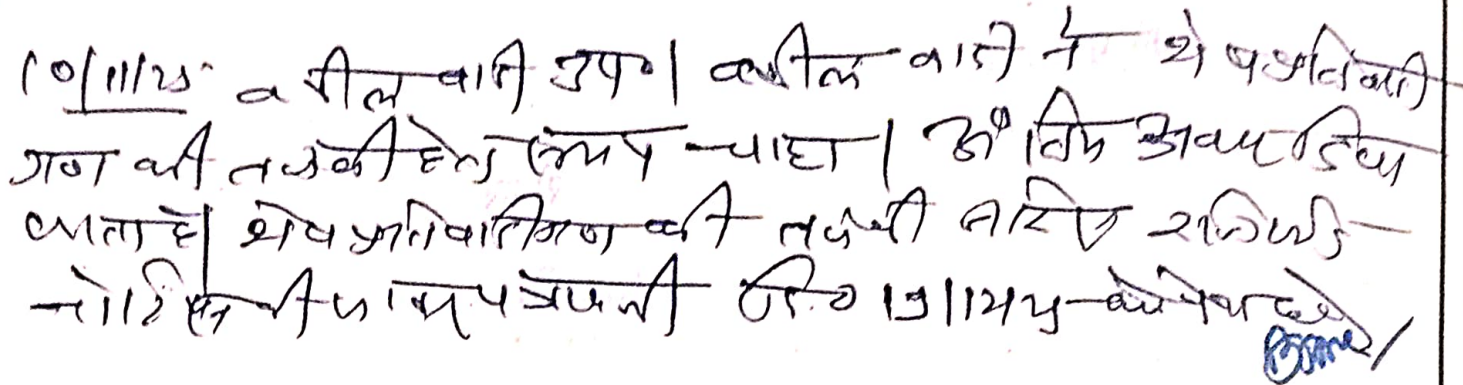 10/11/25 वकील वादी उप०। वकील वादी ने शेष प्रतिवादी
गण की तलबी हेतु समय चाहा। अंतिम अवसर दिया
जाता है। शेष प्रतिवादीगण की तलबी जरिए रजिस्टर्ड
नोटिस की जावे पत्रावली दि० को पेश हो